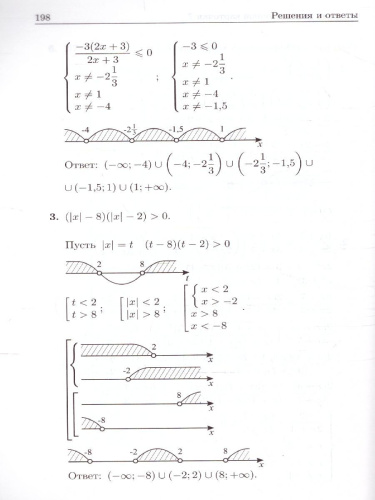 198 Решения и ответы
{ −3(2x + 3)/(2x + 3) ⩽ 0 ; { −3 ⩽ 0 .
x ≠ −2 1/3 x ≠ −2 1/3
x ≠ 1 x ≠ 1
x ≠ −4 x ≠ −4
x ≠ −1,5
-4 -2 1/3 -1,5 1 x
Ответ: (−∞; −4) ∪ (−4; −2 1/3) ∪ (−2 1/3; −1,5) ∪
∪ (−1,5; 1) ∪ (1; +∞).
3. (|x| − 8)(|x| − 2) > 0.
Пусть |x| = t (t − 8)(t − 2) > 0
2 8 t
[ t < 2 ; [ |x| < 2 ; [ { x < 2 .
t > 8 |x| > 8 x > −2
x > 8
x < −8
2 x
-2 x
8 x
-8 x
-8 -2 2 8 x
Ответ: (−∞; −8) ∪ (−2; 2) ∪ (8; +∞).